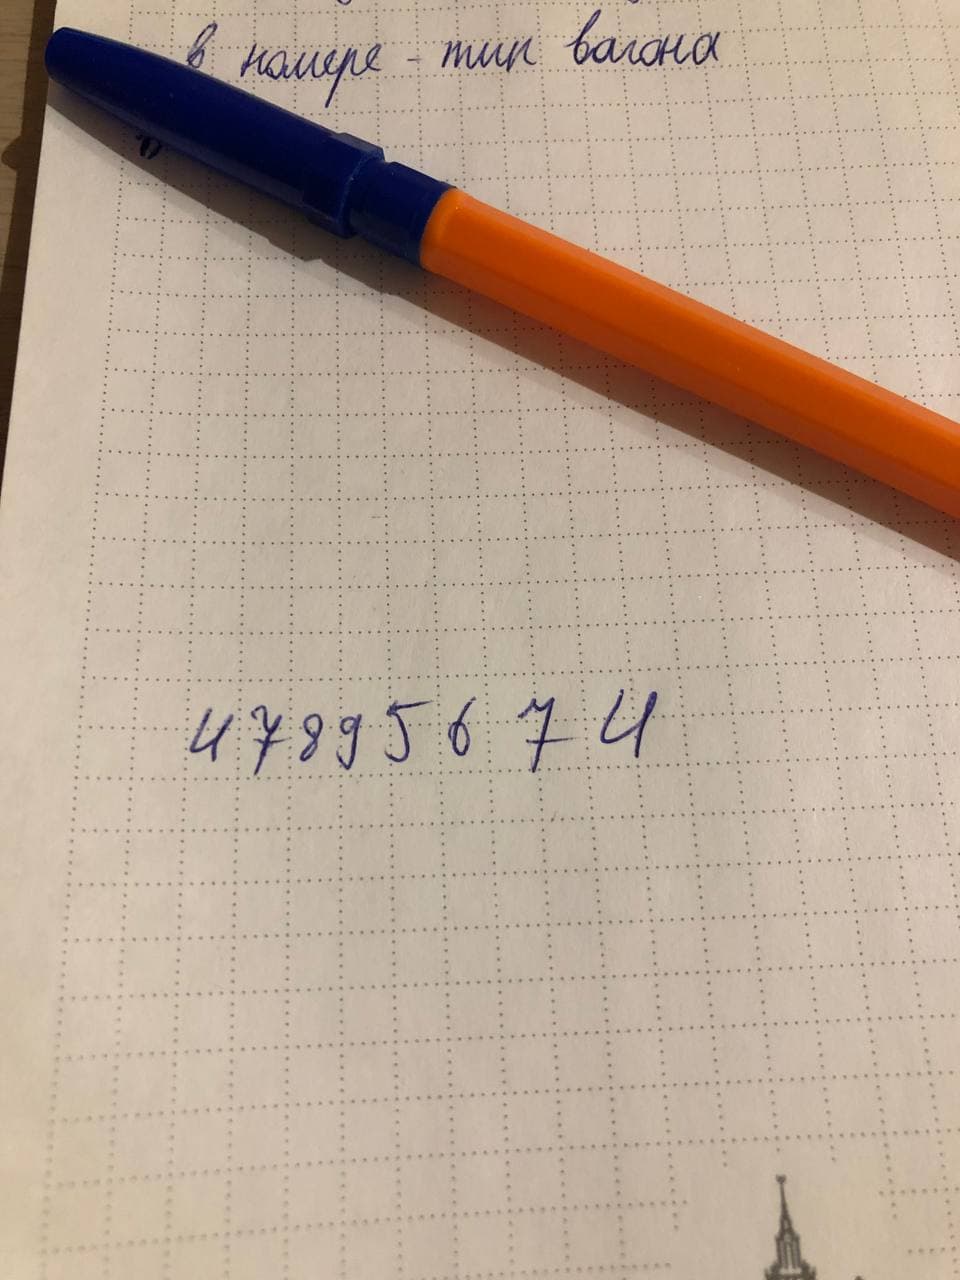 в номере - тип вагона
47895674